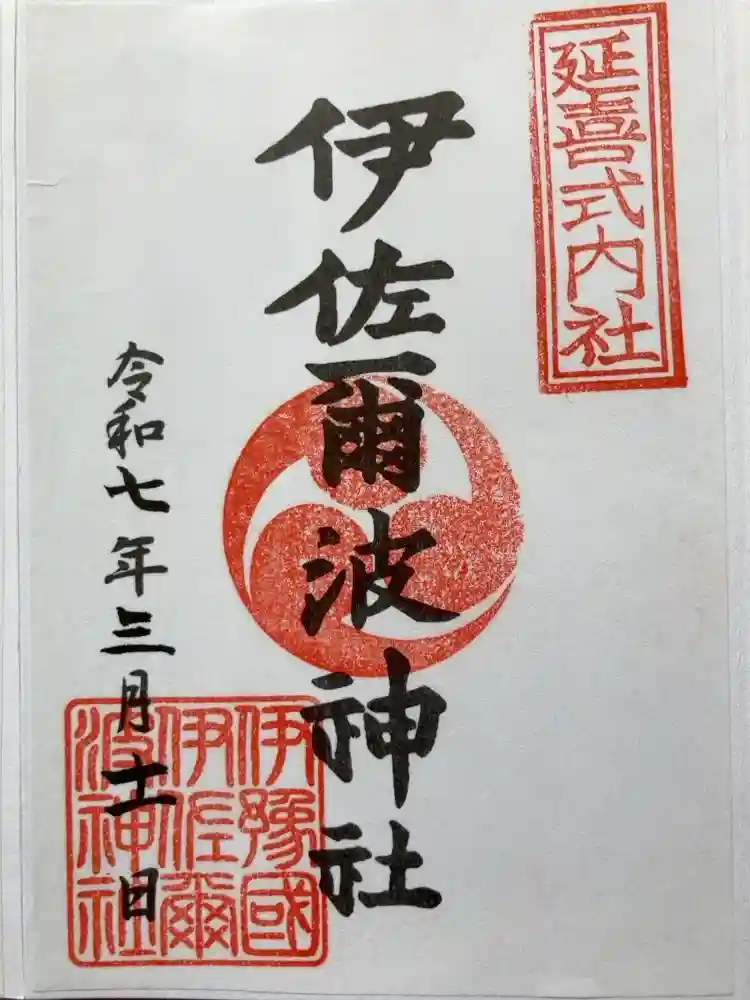 延喜式内社
伊佐爾波神社
令和七年三月十一日
伊豫國
伊佐爾
波神社